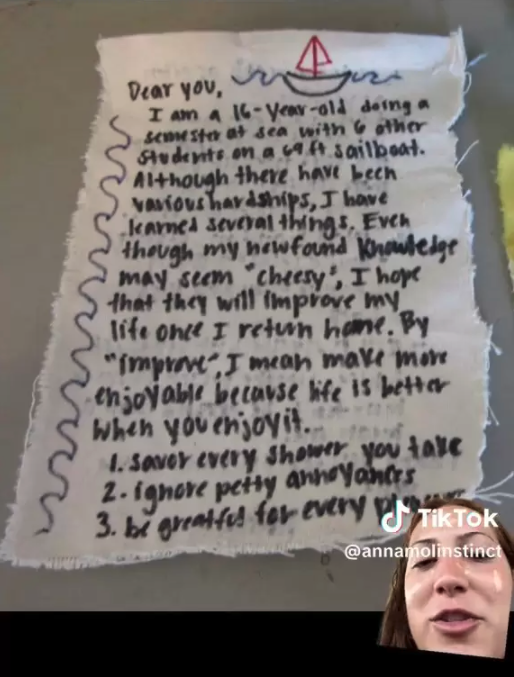 Dear you,
I am a 16-year-old doing a
semester at sea with 6 other
students on a 69 ft sailboat.
Although there have been
various hardships, I have
learned several things. Even
though my newfound knowledge
may seem "cheesy", I hope
that they will improve my
life once I return home. By
"improve", I mean make more
enjoyable because life is better
when you enjoy it.
1. savor every shower you take
2. ignore petty annoyances
3. be greatful for every
TikTok
@annamolinstinct